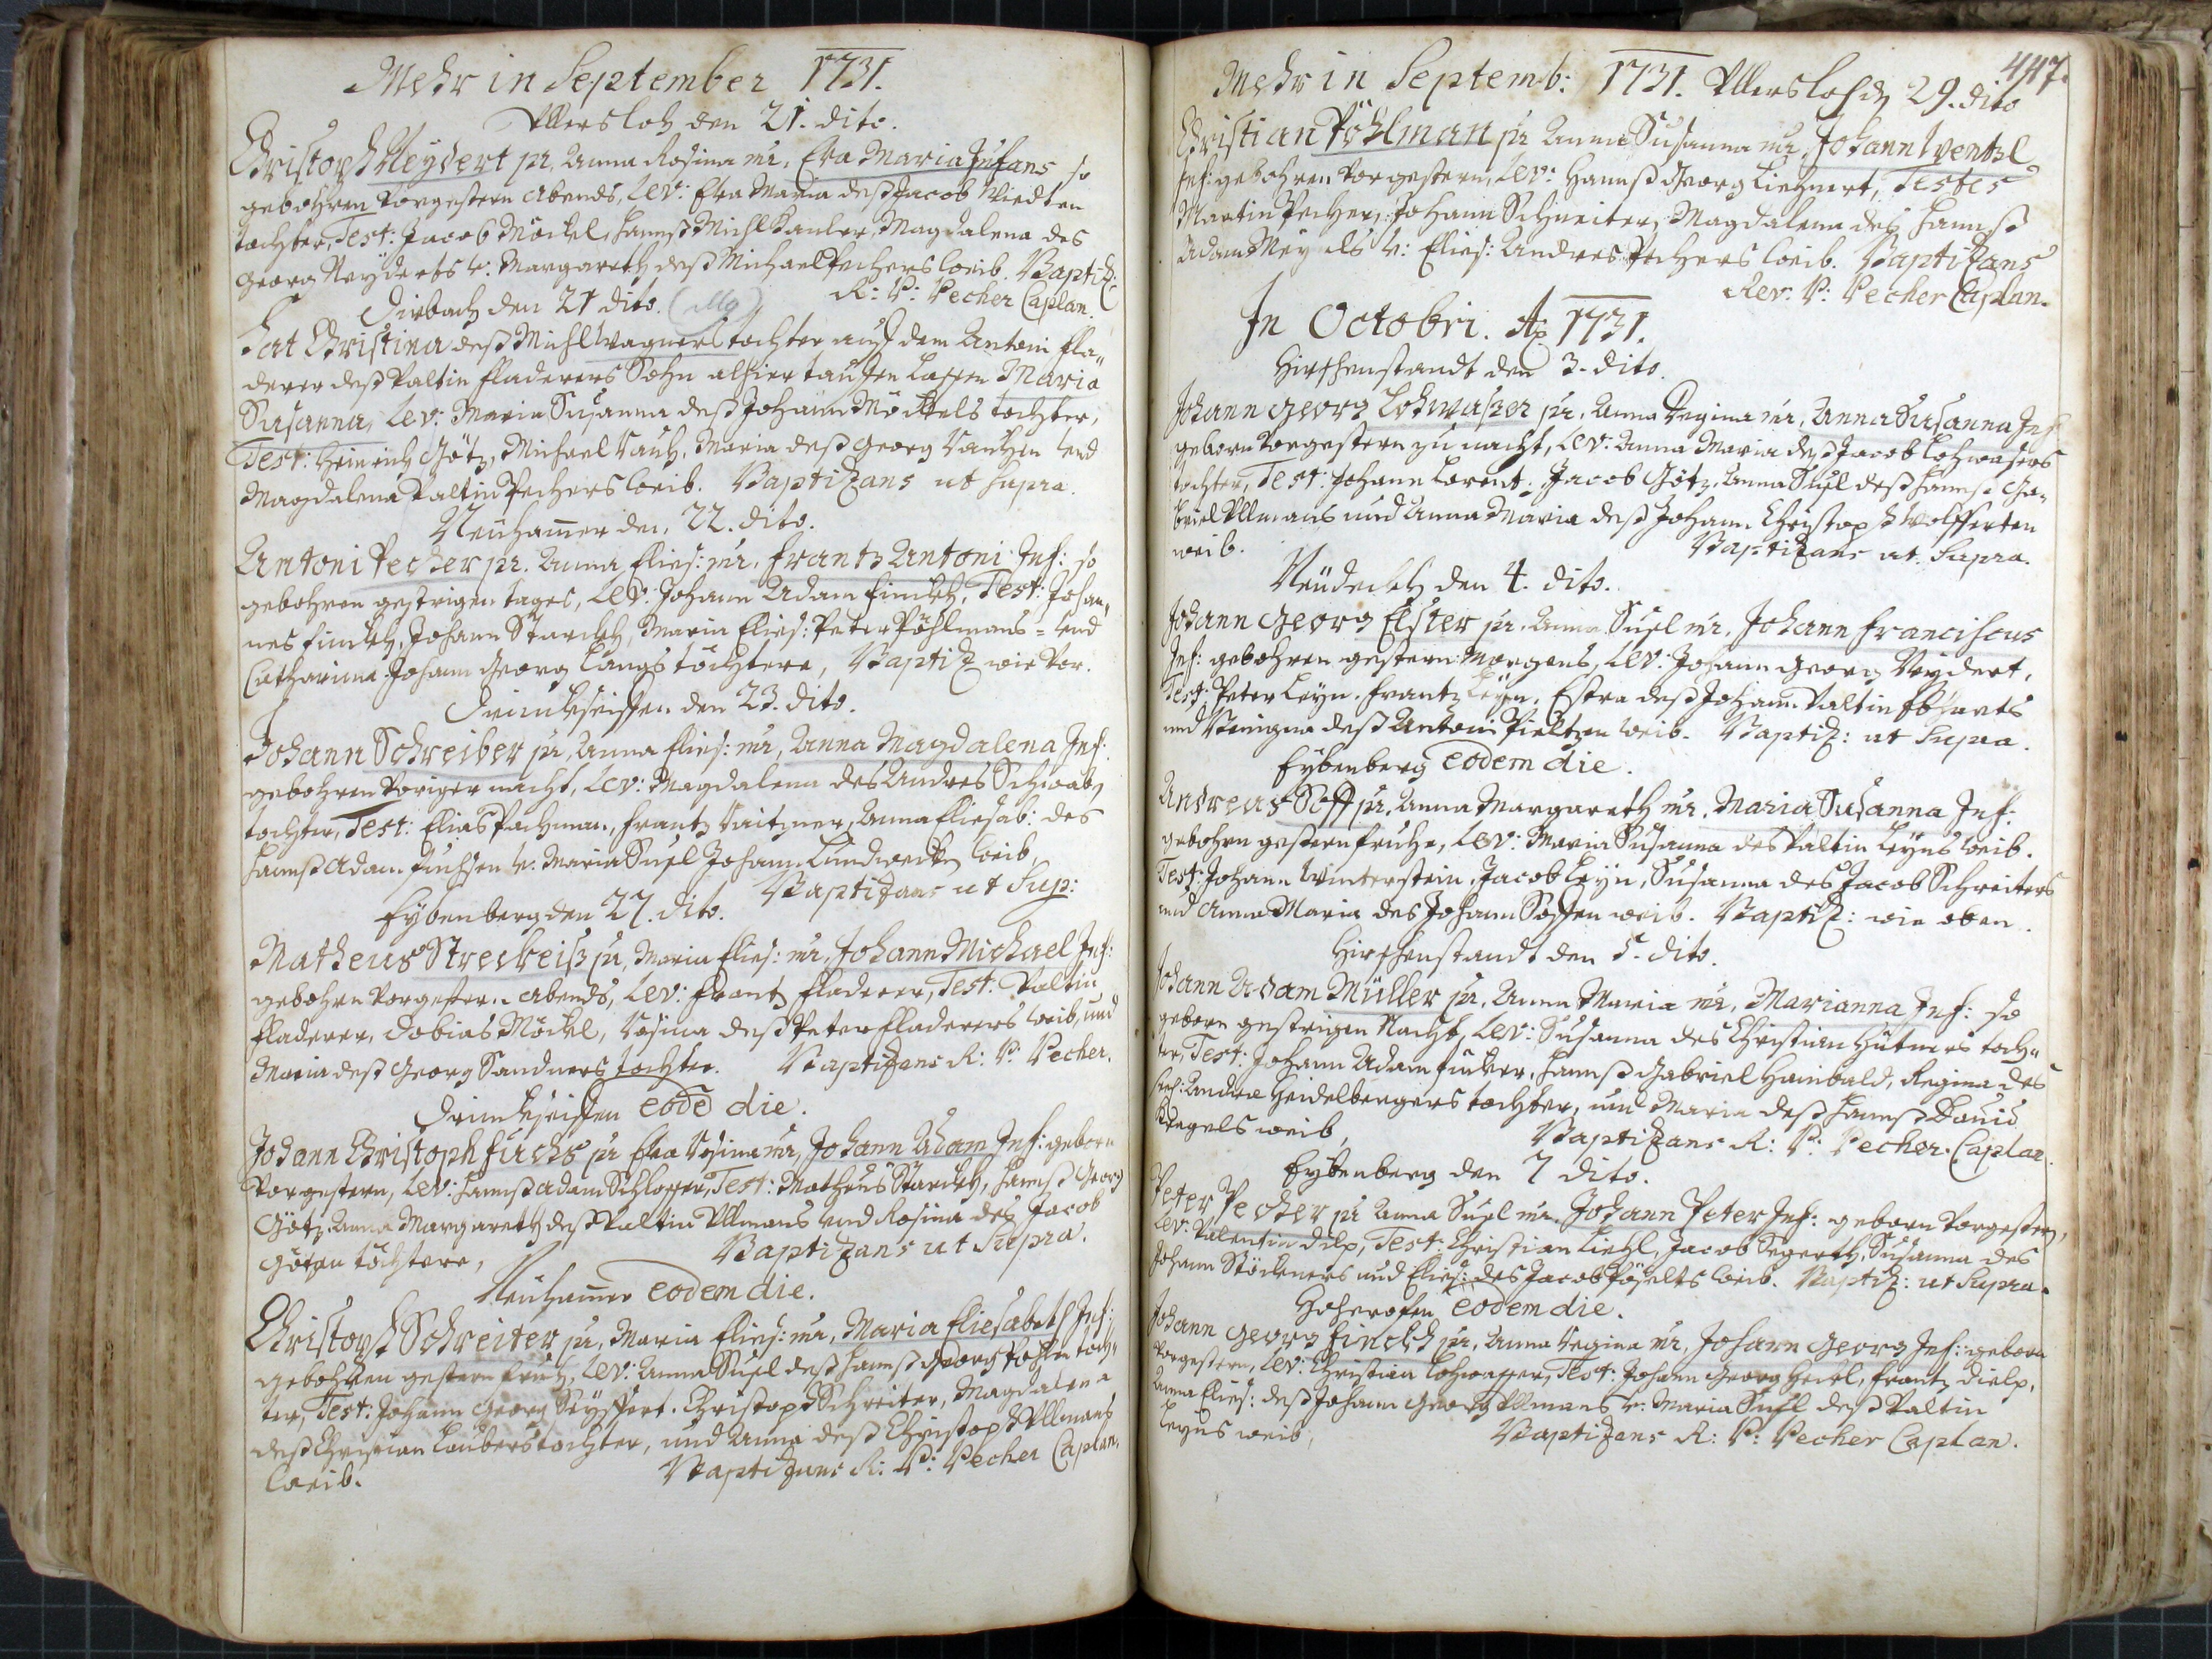 Mehr in September 1731.
Ullersloh den 21. dito.
Christoph Neydert pr. Anna Rosina mr, Eva Maria Infans so
gebohren Vorgestern abends, Lev: Eva Maria deß Jacob
tochter, Test: Jacob Möckel, Hannß Michl Magdalena des
Georg Neyderts v. Margareth deß Michael Pechers weib. Baptiz:
R: P: Pecher Caplan.
den 21 dito.
Hat Christina deß Michl Wagners tochter auß dem Antoni Fla„
derer deß Valtin Fladerers Sohn alhier tauffen Lassen Maria
Susanna, Lev: Maria Susanna deß Johann Möckels tochter,
Test: Heinrich Götz, Michael Maria deß Georg und
Magdalena Valtin Pechers weib. Baptizans ut supra.
Neuhammer den 22. dito.
Antoni Pecher pr. Anna Elies: mr. Frantz Antoni Inf: so
gebohren gestrigen tages, Lev: Johann Adam Finckh, Test: Johan„
nes Finckh, Johann Starckh, Maria Elies: Peter Pöhlmans = und
Catharina Johann Georg Langs töchtere, Baptiz wie Vor.
Trinckseiffen den 23. dito.
Johann Schreiber pr, Anna Elies: mr, Anna Magdalena Inf:
gebohren Voriger nacht, Lev: Magdalena des Andres Schwab
tochter, Test: Elias Pachman, Frantz Anna Eliesab: des
Hannß Adam Fuchsen v. Maria Susl Johann weib,
Baptizans ut Sup:
Eybenberg den 27. dito.
Matheus Streckeiß pr, Maria Elies: mr, Johann Michael Inf:
gebohrn Vorgestern abends, Lev: Frantz Fladerer, Test: Valtin
Fladerer, Tobias Möckl, Rosina deß Peter Fladerers weib, und
Maria deß Georg Sandners tochter. Baptizans R: P: Pecher.
Trinckseiffen eodē die.
Johann Christoph Fuchs pr Eva Rosina mr, Johann Adam Inf: geborn
Vorgestern, Lev: Hannß Adam Schlosser, Test: Matheus Starckh, Hannß Georg
Götz, Anna Margareth deß Valtin Ullmans und Rosina des Jacob
Götzen töchtere, Baptizans ut Supra.
Neuhammer eodem die.
Christoph Schreiter pr, Maria Elies: mr, Maria Eliesabeth Inf:
gebohren gestern fruh, Lev: Anna Susl deß Hannß Georg toch„
ter, Test: Johann Georg Seyffert, Christoph Schreiter, Magdalena
deß Christian Laubers tochter, und Anna deß Christoph Ullmans
weib. Baptizans R: P: Pecher Caplan.
447.
Mehr in Septemb: 1731. Ullersloh den 29. dito
Christian Pöhlman pr Anna Susanna mr, Johann Wentzl
Inf: gebohren Vorgestern, Lev: Hannß Georg Lienert, Testes
Martin Pecher, Johann Schreiter, Magdalena des Hannß
Adam v: Elies: Andres Pechers weib. Baptizans
Rev: P: Pecher Caplan.
In Octobri. Ao 1731.
Hirschenstandt den 3. dito.
Johann Georg Lohwaßer pr, Anna Regina mr, Anna Susanna Inf
geborn Vorgestern zu nacht, Lev: Anna Maria deß Jacob Lohwasers
tochter, Test: Johann Lorent, Jacob Götz, Anna Susl deß Hannß Ga„
briel Ullmans und Anna Maria deß Johann Christoph Wolfferten
weib. Baptizans ut Supra.
Neudeckh den 4. dito.
Johann Georg Elster pr. Anna Susl mr. Johann Franciscus
Inf: gebohren gestern Morgens, Lev: Johann Georg Neydert,
Test: Peter Leyn, Frantz Leyn, Estra deß Johann Valtin
und Benigna deß Antoni weib. Baptiz: ut Supra.
Eybenberg eodem die.
Andreas Soff pr. Anna Margareth mr. Maria Susanna Inf:
gebohrn gestern fruhe, Lev: Maria Susanna des Valtin Leyns weib.
Test: Johann Winterstein, Jacob Leyn, Susanna des Jacob Schreiters
und Anna Maria des Johann Soffen weib. Baptiz: wie oben.
Hirschenstandt den 5. dito.
Johann Adam Müller pr, Anna Maria mr, Marianna Inf: so
geborn gestrigen Nacht, Lev: Susanna des Christian Hütners toch„
ter, Test: Johann Adam Hannß Gabriel Hainbald, Regina des
Andrea Heidelbergers tochter, und Maria deß Hannß David
weib, Baptizans R: P: Pecher. Caplan.
Eybenberg den 7 dito.
Peter Pecher pr Anna Susl mr. Johann Peter Inf: geborn Vorgestern,
Lev: Valentin Dilp, Test: Christian Liehl, Jacob Susanna des
Johann Stöckners und Elies: des Jacob Pöselts weib. Baptiz: ut Supra.
Hoherofen eodem die.
Johann Georg Finckh pr, Anna Regina mr, Johann Georg Inf: geborn
Vorgestern, Lev: Christian Lohwasser, Test: Johann Georg Frantz Dielp,
Anna Elies: deß Johann Georg Ullmans v. Maria Susl deß Valtin
Leyns weib, Baptizans R: P: Pecher Caplan.